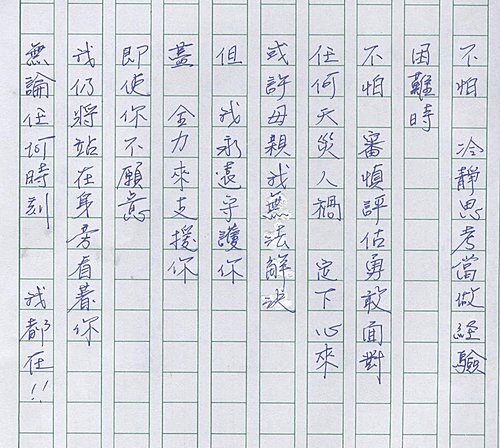 不怕 冷靜思考當做經驗
困難時
不怕 審慎評估勇敢面對
任何天災人禍 定下心來
或許母親我無法解決
但 我永遠守護你
盡 全力來支援你
即使你不願意
我仍將站在身旁看著你
無論任何時刻 我都在!!